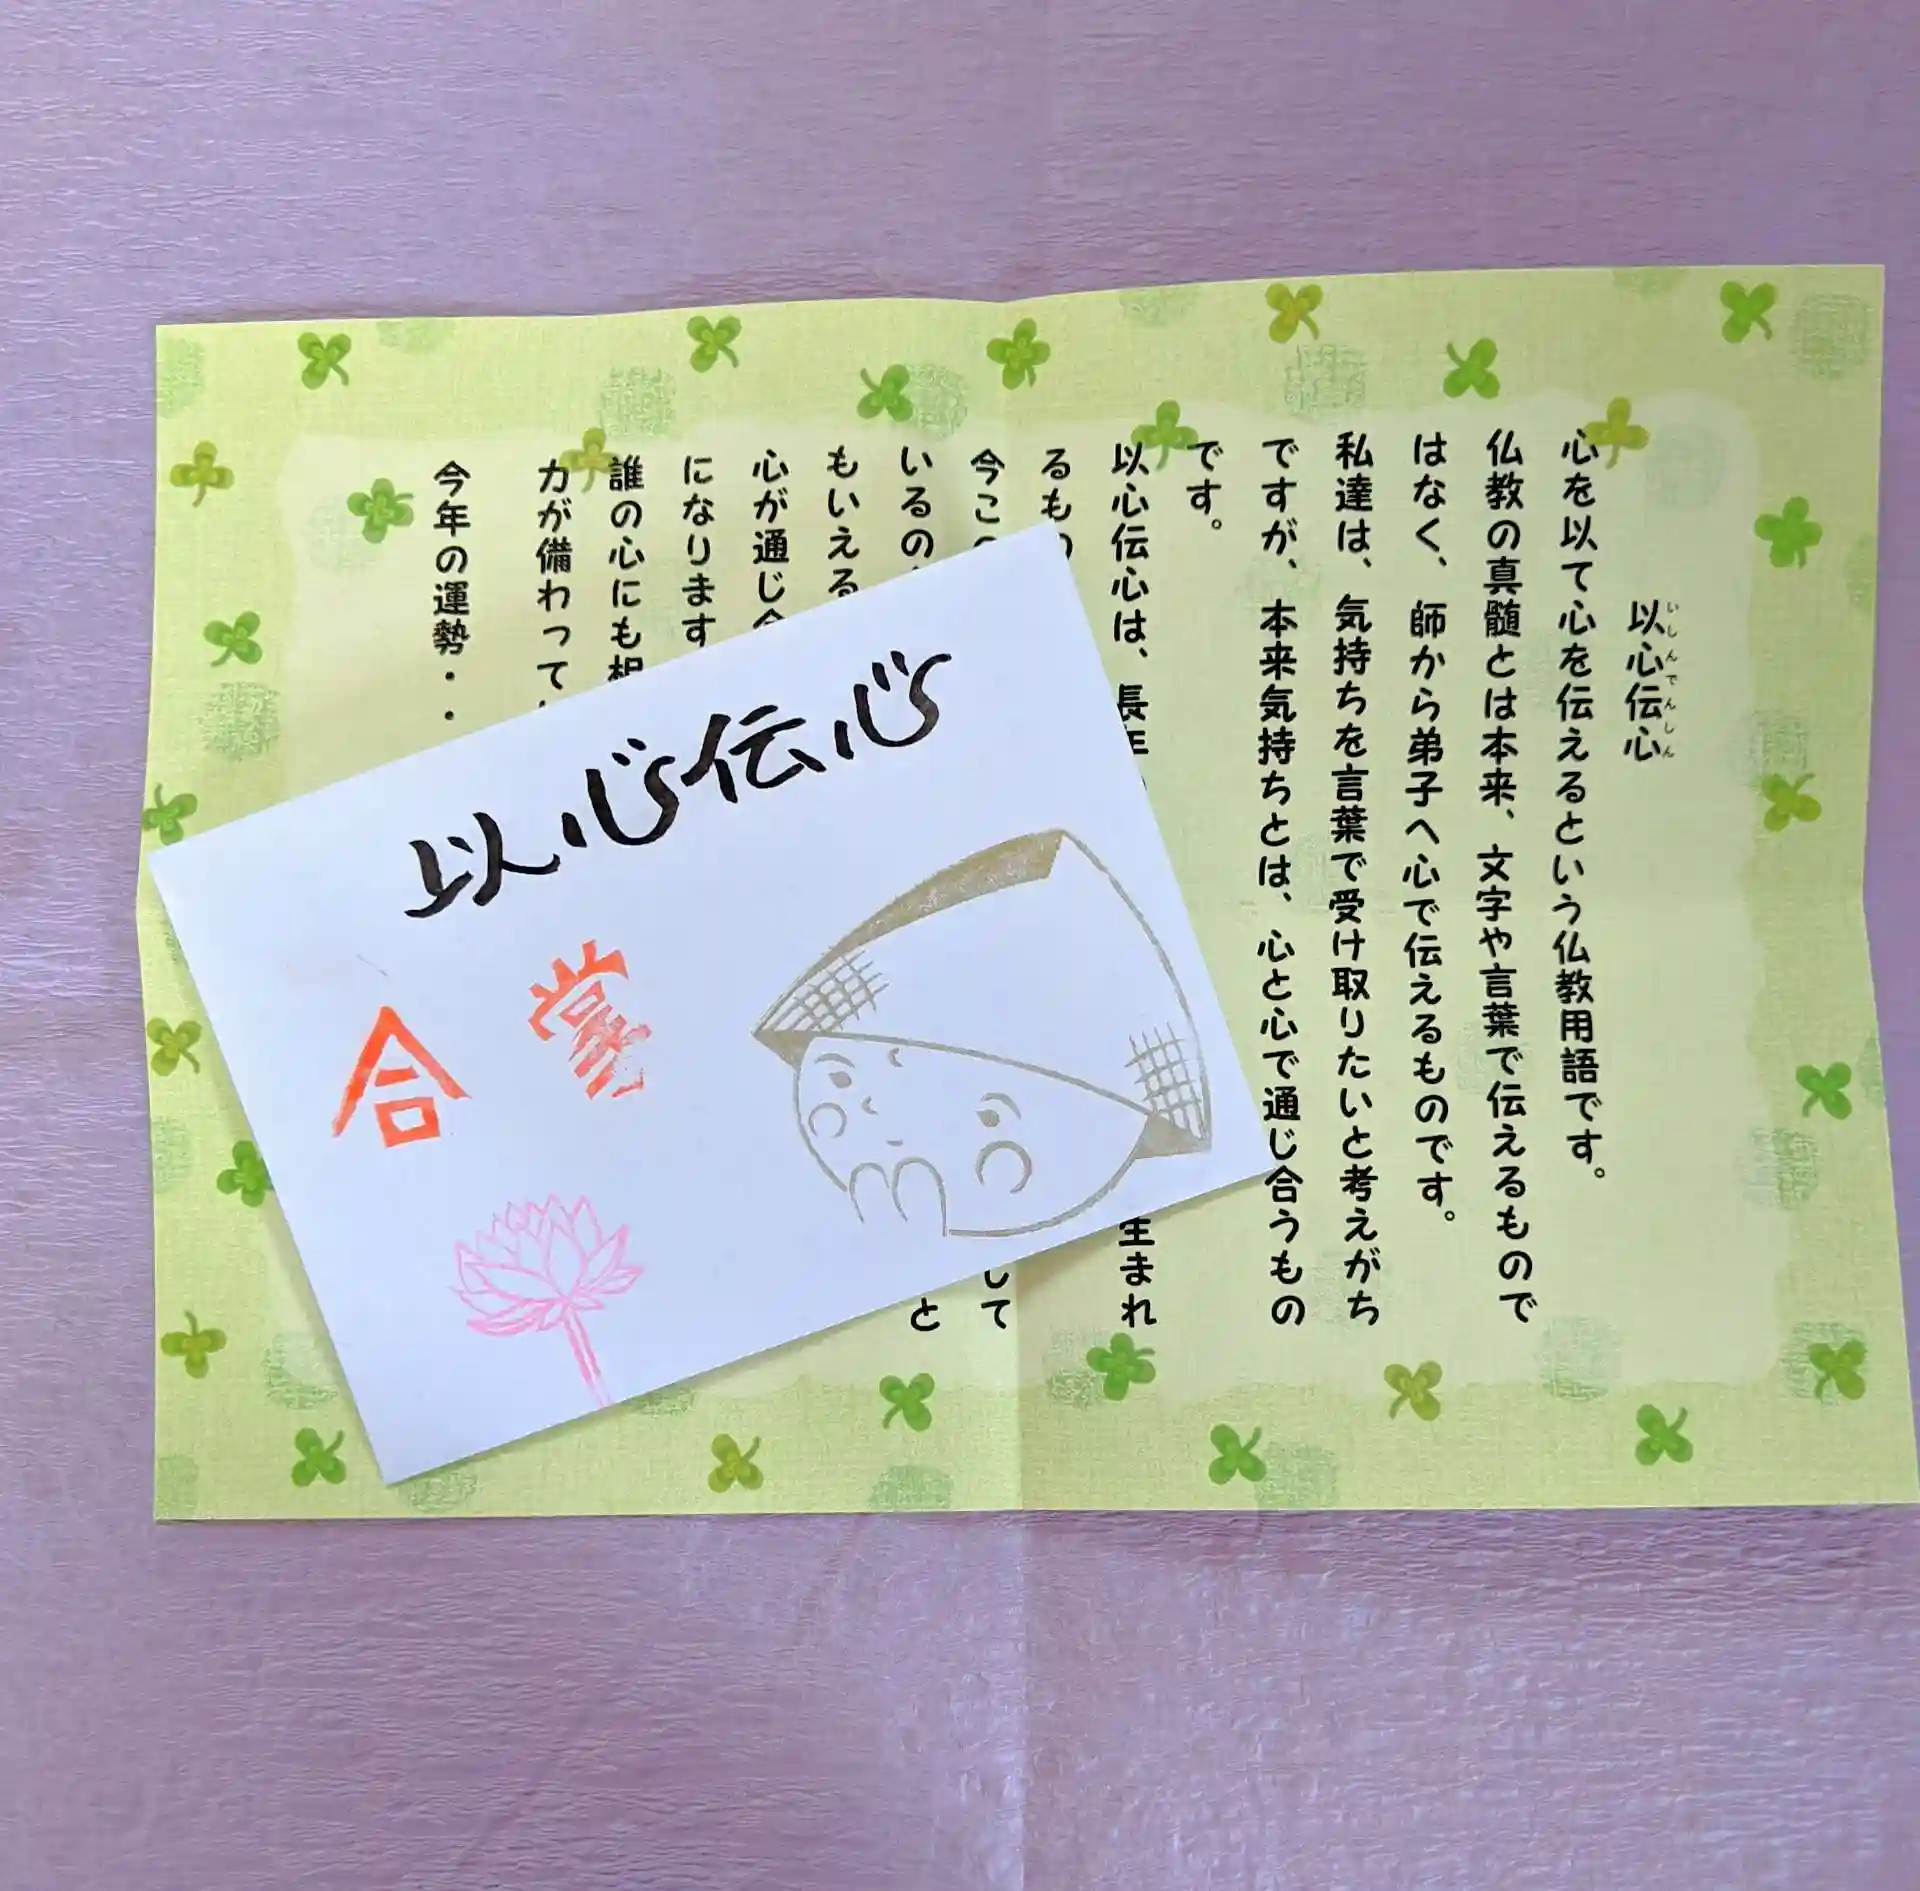 以心伝心
いしんでんしん
心を以て心を伝えるという仏教用語です。
仏教の真髄とは本来、文字や言葉で伝えるもので
はなく、師から弟子へ心で伝えるものです。
私達は、気持ちを言葉で受け取りたいと考えがち
ですが、本来気持ちとは、心と心で通じ合うもの
です。
以心伝心は、長年 生まれ
るもの
今この して
いるの と
もいえる
心が通じ合
になります
誰の心にも相
力が備わって
今年の運勢・・
以心伝心
合掌